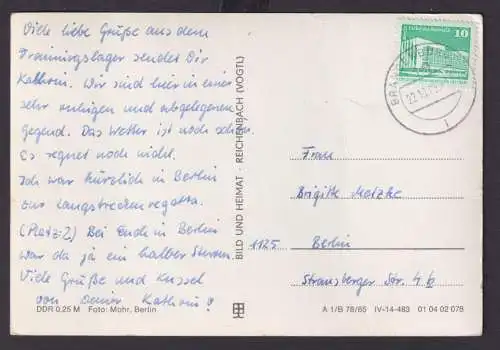 Viele liebe Grüße aus dem
Trainingslager sendet Dir
Kathrin. Wir sind hier in einer
sehr ruhigen und abgelegenen
Gegend. Das Wetter ist noch schön.
Es regnet noch nicht.
Ich war kürzlich in Berlin
zur Langstreckenregatta.
(Platz: 2) Bei Euch in Berlin
war da ja ein halber Sturm.
Viele Grüße und Küssel
von Deiner Kathrin!
DDR 0,25 M Foto: Mohr, Berlin
BILD UND HEIMAT · REICHENBACH (VOGTL)
10
22.10.
Frau
Brigitte Matzke
1125 Berlin
Strausberger Str. 4b
A 1/B 78/85 IV-14-483 01 04 02 078